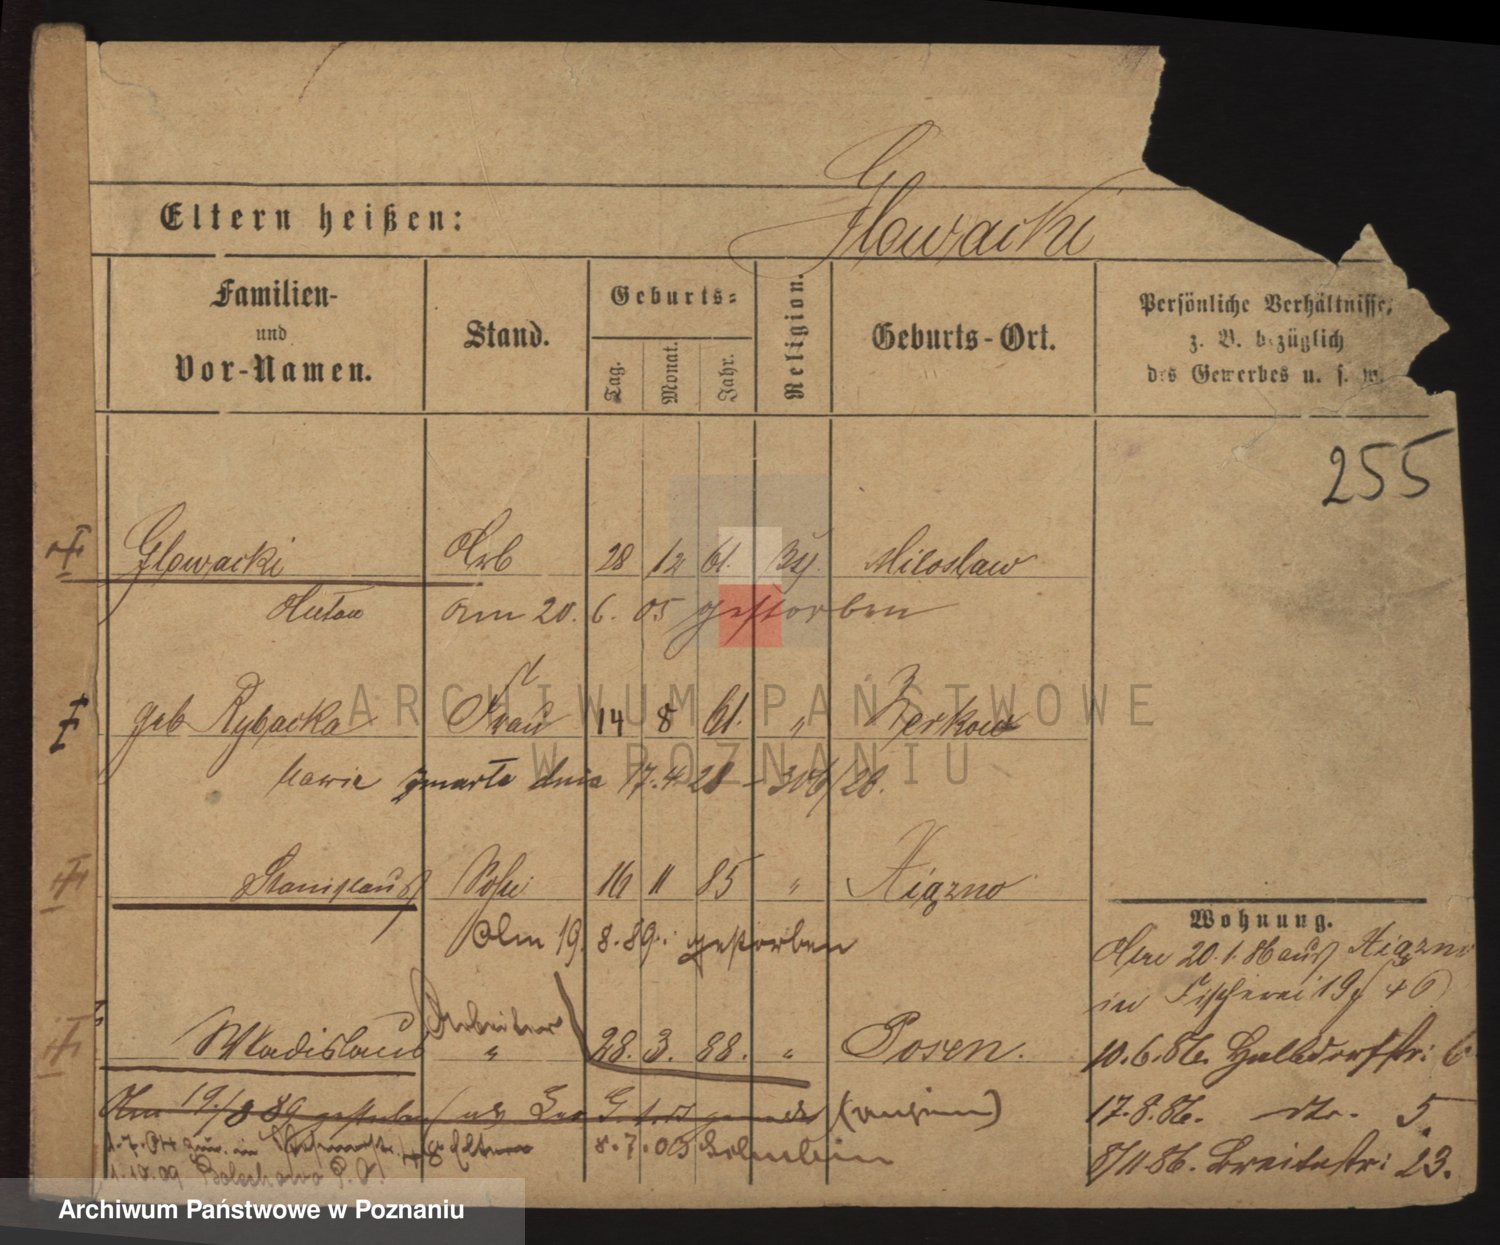 Glowacki
Eltern heißen:
Familien-
und
Vor-Namen.
Stand.
Geburts-
Tag.
Monat.
Jahr.
Religion.
Geburts-Ort.
Persönliche Verhältnisse,
z. B. bezüglich
des Gewerbes u. s. w.
255
Glowacki Arb 28 12 61. Miloslaw
Anton am 20. 6. 05 gestorben
geb Rybacka Frau 14 8 61. " Zerkow
zmarła dnia 17.4 28
Stanislaus Sohn 16 11 85 "
Am 19. 8. 89. gestorben
Wohnung.
20. 1. 86 aus
in Fischerei 19
Arbeiter
Wladislaus " 28. 3. 88. " Posen.
10.6.86. Halbdorfstr: 6
Am 19/8 89 gestorben
17.8.86. dto. 5.
Eltern 8.7.05
8/11 86. Breitestr: 23.
1.10.09 Bolechowo
ARCHIWUM PAŃSTWOWE
W POZNANIU
Archiwum Państwowe w Poznaniu